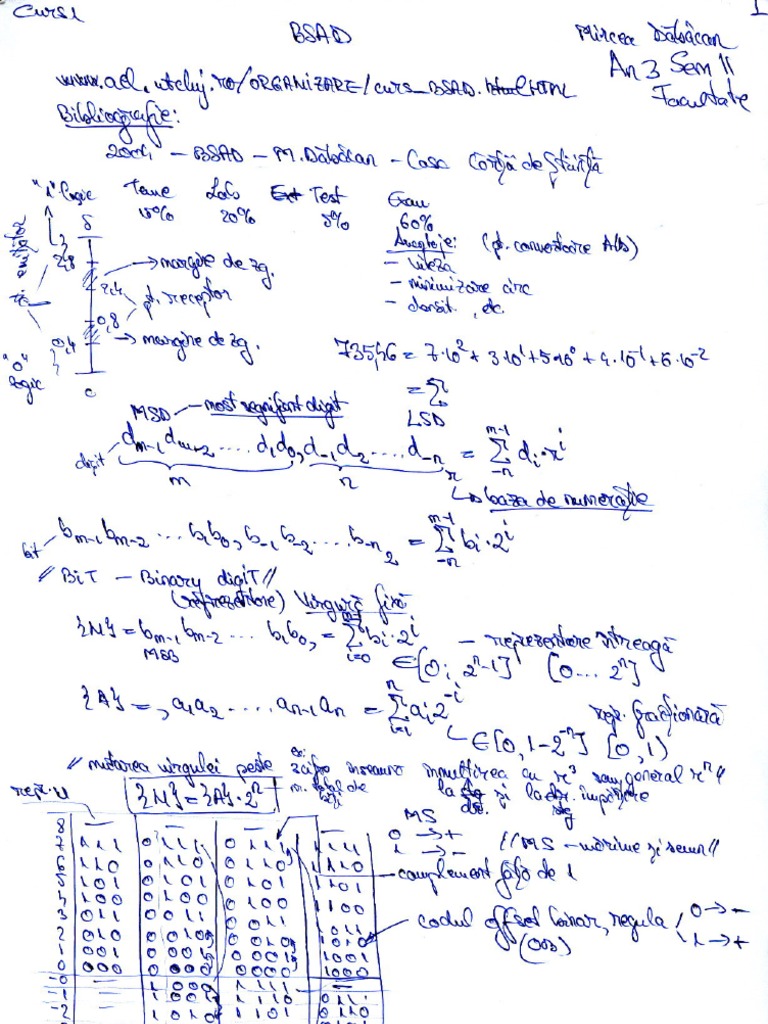 Curs1
1
BSAD
Mircea Dăbâcan
An 3 Sem II
Facultate
www.ael.utcluj.ro/ORGANIZARE/curs_BSAD.HTML
Bibliografie:
2001 – BSAD – M. Dăbâcan – Casa Cărții de Știință
"1" logic Teme Lab Test Exam
10% 20% 60%
5
Avantaje: (pt. convertoare A/D)
- viteza
- minimizare circ
- densit., etc.
2,8 → margine de zg.
2,4 pt. receptor
0,8
0,4 → margine de zg.
"0" logic
0
735,46 = 7·10² + 3·10¹ + 5·10⁰ + 4·10⁻¹ + 6·10⁻²
= Σ
MSD – most significant digit LSD
digit d_{m-1} d_{m-2} .... d₁d₀, d₋₁ d₋₂ .... d₋ₙ r = Σ_{-n}^{m-1} dᵢ·rⁱ
m n → baza de numerație
bit b_{m-1} b_{m-2} ... b₁ b₀, b₋₁ b₋₂ .... b₋ₙ ₂ = Σ_{-n}^{m-1} bᵢ·2ⁱ
// BiT – Binary digiT //
(reprezentare) Virgură fixă
{N} = b_{m-1} b_{m-2} ... b₁ b₀, = Σ_{i=0} bᵢ·2ⁱ – reprezentare întreagă
MSB ∈ [0; 2ⁿ-1] [0 ... 2ⁿ]
{A} = , a₁ a₂ ..... a_{n-1} aₙ = Σ_{i=1}^{n} aᵢ 2⁻ⁱ repr. fracționară
∈ [0, 1-2⁻ⁿ] [0, 1)
// mutarea virgulei peste 3 cifre înseamnă înmulțirea cu r³ sau general rⁿ //
{N} = {A}·2ⁿ
MS
0 → + // MS – mărime și semn //
1 → -
complement față de 1
codul offset binar, regula 0 → -
(OB) 1 → +
8 — — —
7 111 0 111 0 111 1111
6 110 0 110 0 110 1110
5 101 0 101 0 101 1101
4 100 0 100 0 100 1100
3 011 0 011 0 011
2 010 0 010 0 010 1010
1 001 0 001 0 001
0 000 0 000 0 000 1000
-0 — 1 000 1 111 —
-1 — 1 001 1 110 0111
-2 — 1 010 1 101 0110